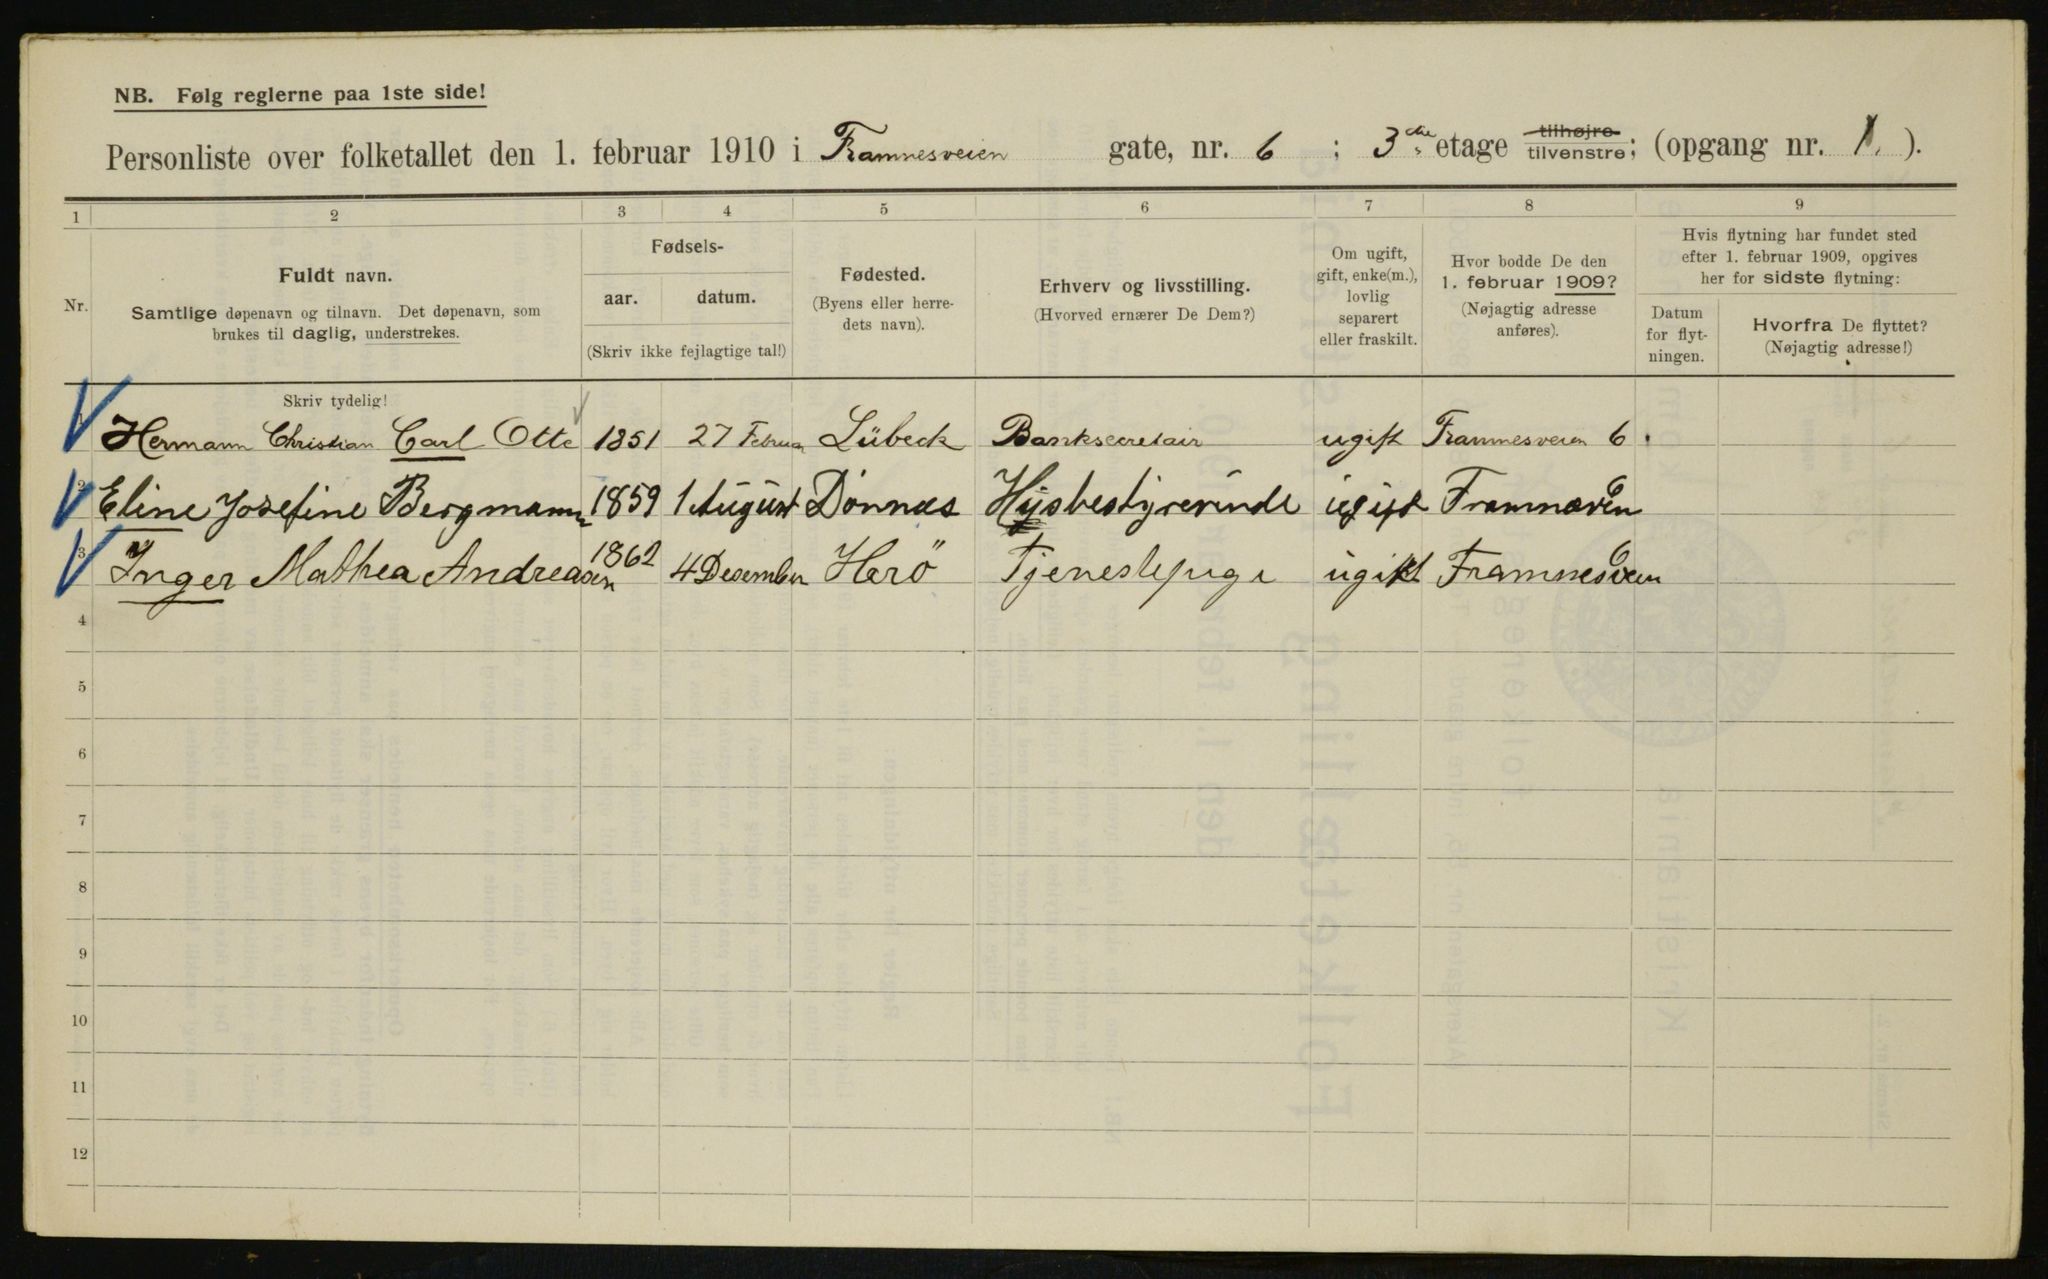 NB. Følg reglerne paa 1ste side!
Personliste over folketallet den 1. februar 1910 i Framnesveien gate, nr. 6 ; 3die etage tilhøjre tilvenstre; (opgang nr. 1. ).
1 2 3 4 5 6 7 8 9
Nr.
Fuldt navn.
Samtlige døpenavn og tilnavn. Det døpenavn, som
brukes til daglig, understrekes.
Fødsels-
aar. datum.
(Skriv ikke fejlagtige tal!)
Fødested.
(Byens eller herre-
dets navn).
Erhverv og livsstilling.
(Hvorved ernærer De Dem?)
Om ugift,
gift, enke(m.),
lovlig
separert
eller fraskilt.
Hvor bodde De den
1. februar 1909?
(Nøjagtig adresse
anføres).
Hvis flytning har fundet sted
efter 1. februar 1909, opgives
her for sidste flytning:
Datum
for flyt-
ningen.
Hvorfra De flyttet?
(Nøjagtig adresse!)
Skriv tydelig!
1 Hermann Christian Carl Otte 1851 27 Februar Lübeck Banksecretair ugift Framnesveien 6.
2 Eline Josefine Bergmann 1859 1 August Dønnæs Husbestyrerinde ugift 6
3 Inger Mathea Andreasen 1862 4 Desember Herö ugift Framnesveien 6
4
5
6
7
8
9
10
11
12